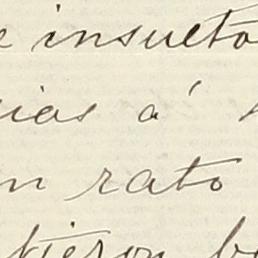 e insulto
ias á
n rato
tieron